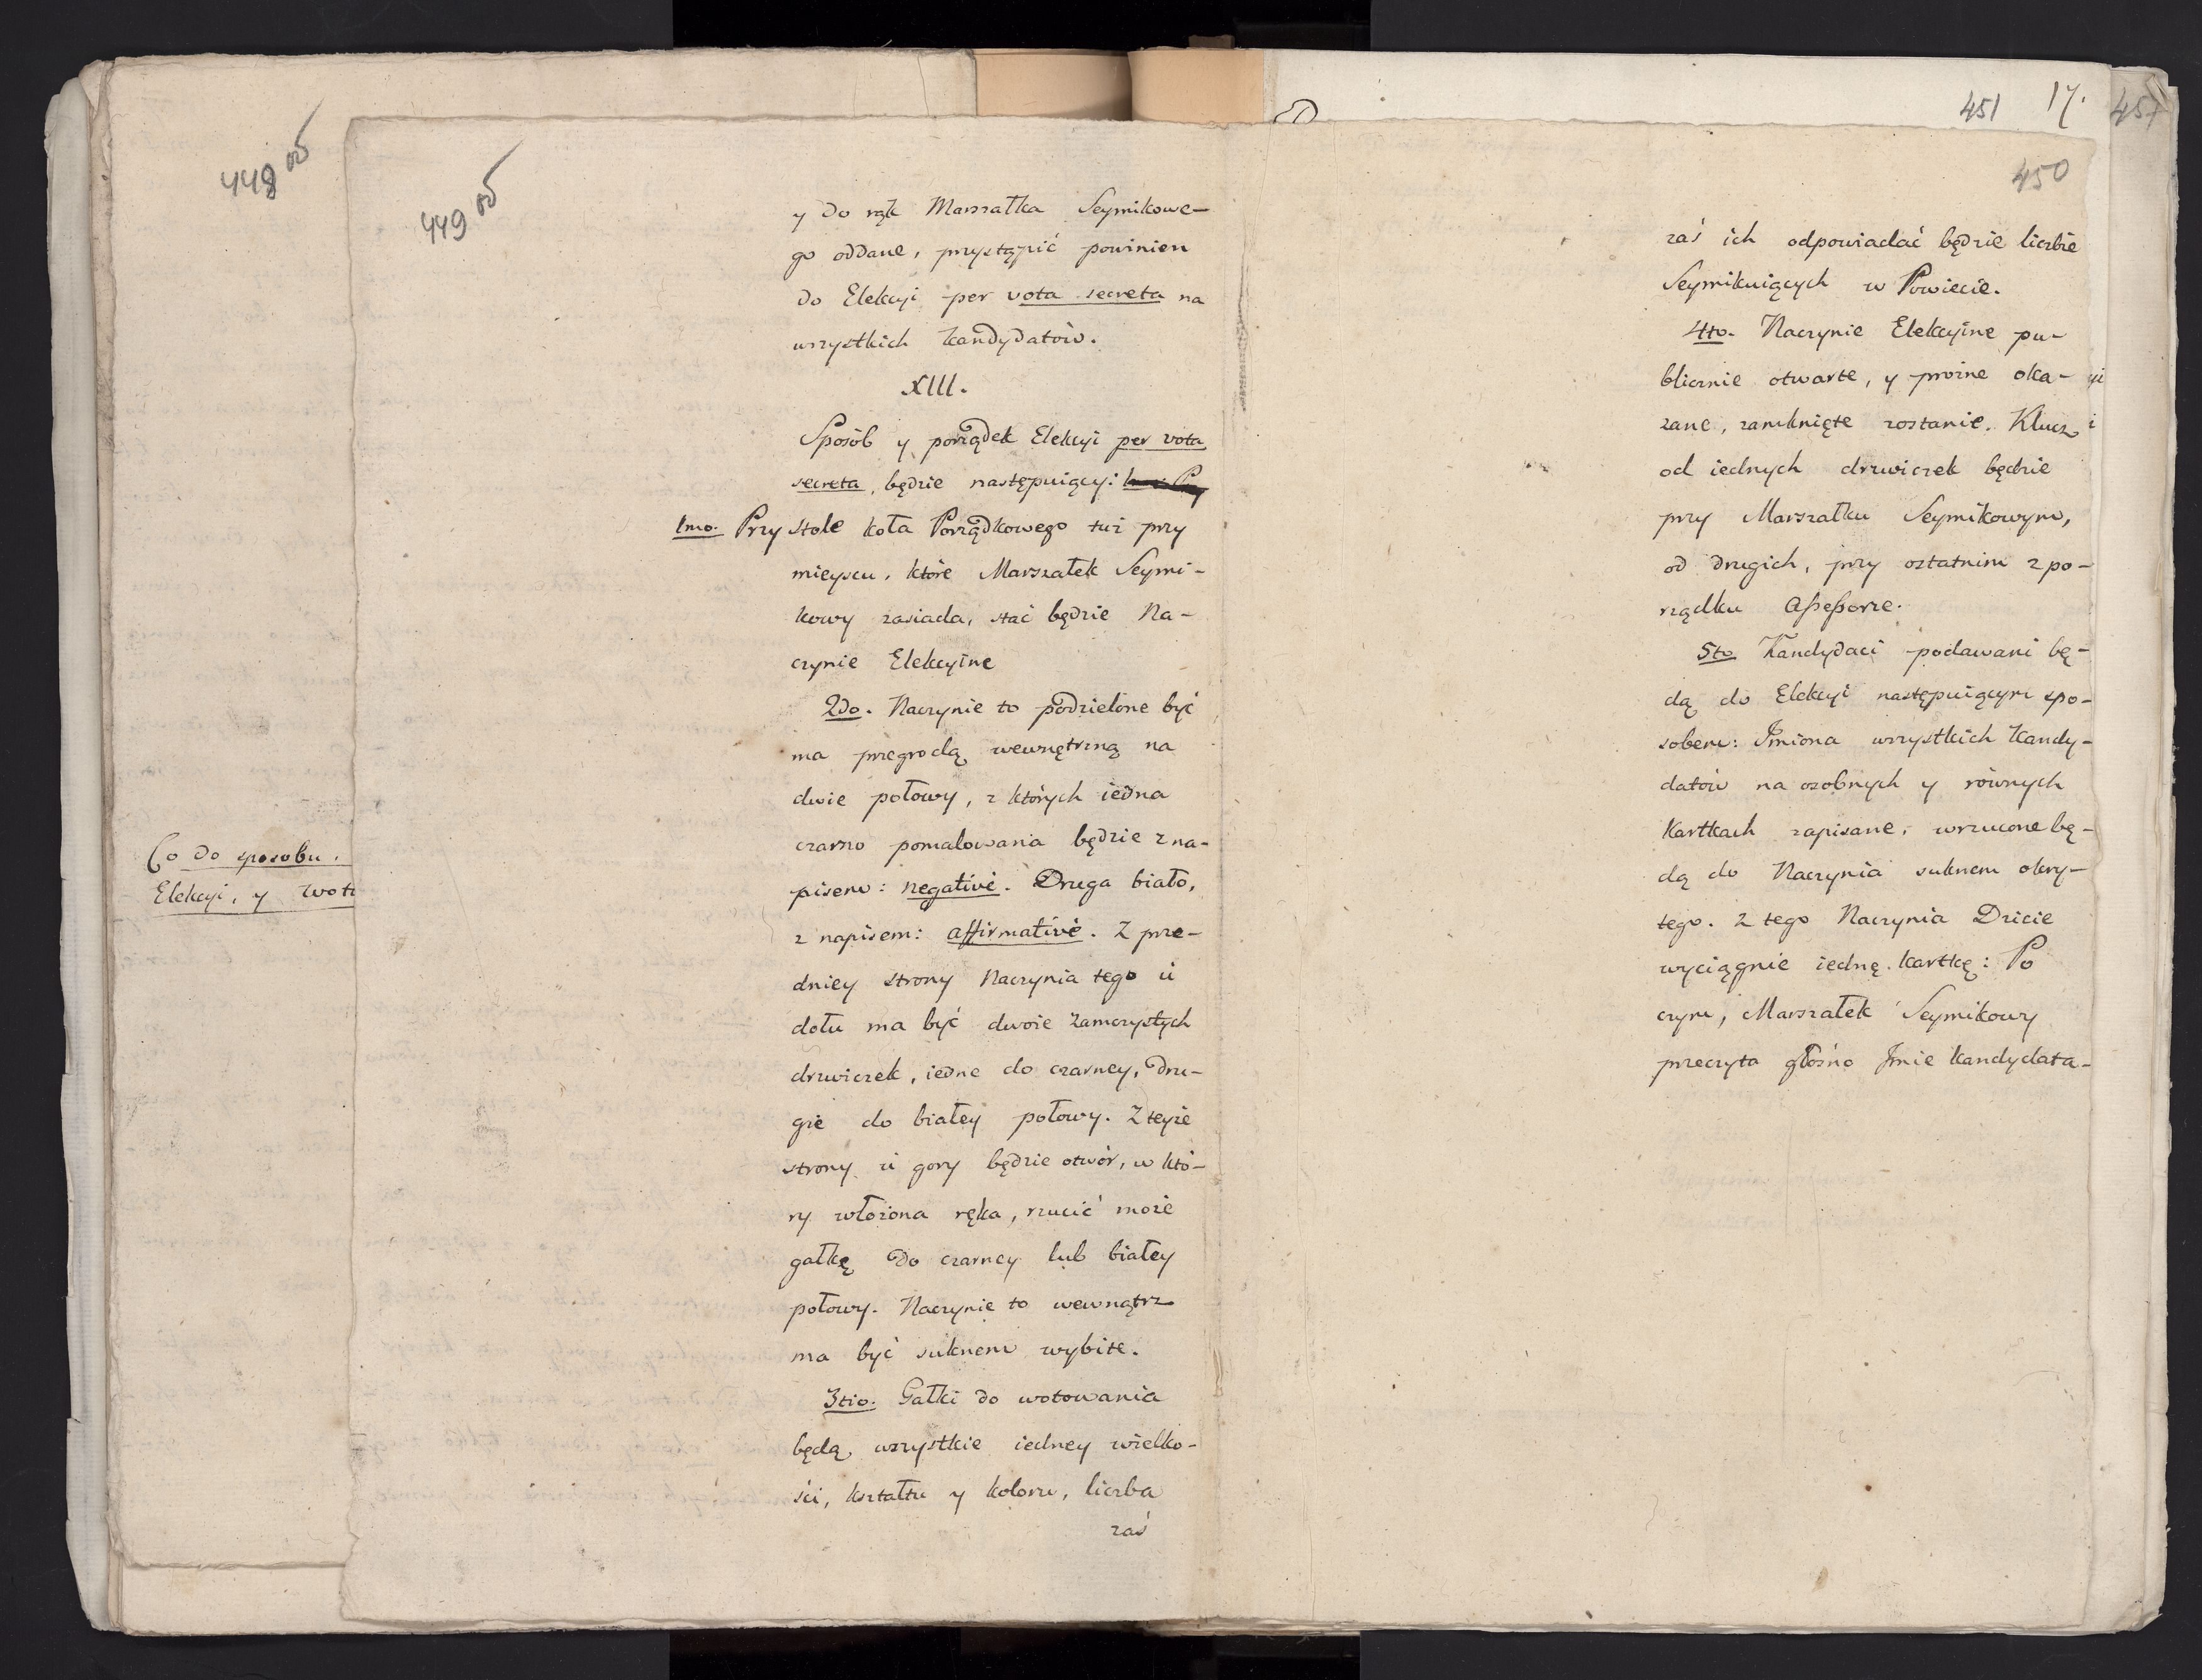 448 об
449 об
Co do sposobu.
Elekcyi, y
y do rąk Marszałka Seymikowe-
go oddane, przystąpić powinien
do Elekcyi per vota secreta na
wszystkich Kandydatów.
XIII.
Sposób y porządek Elekcyi per vota
secreta, będzie następuiący:
1mo. Przy stole koła Porządkowego tuż przy
mieyscu, które Marszałek Seymi-
kowy zasiada, stać będzie Na-
czynie Elekcyine
2do. Naczynie to podzielone być
ma przegrodą wewnętrzną na
dwie połowy, z których iedna
czarno pomalowana będzie z na-
pisem: negativè. Druga biało,
z napisem: affirmativè. Z prze-
dniey strony Naczynia tego ù
dołu ma być dwoie zamczystych
drzwiczek, iedne do czarney, dru-
gie do białey połowy. Z teyże
strony ù gory będzie otwór, w któ-
ry włożona ręka, rzucić może
gałkę do czarney lub białey
połowy. Naczynie to wewnątrz
ma być suknem wybite.
3tio. Gałki do wotowania
będą, wszystkie iedney wielko-
ści, kształtu y koloru, liczba
zaś
451 17.
457
450
zaś ich odpowiadać będzie liczbie
Seymikuiących w Powiecie.
4to. Naczynie Elekcyine pu-
blicznie otwarte, y prożne oka-
zane, zamknięte zostanie. Klucz
od iednych drzwiczek będzie
przy Marszałku Seymikowym,
od drugich, przy ostatnim z po-
rządku Aßeßorze.
5to Kandydaci podawani bę-
dą do Elekcyi następuiącym spo-
sobem: Jmiona wszystkich Kandy-
datów na osobnych y równych
Kartkach zapisane, wrzucone bę-
dą do Naczynia suknem okry-
tego. z tego Naczynia Dziecie
wyciągnie iednę Kartkę: Po
czym, Marszałek Seymikowy
przeczyta głośno Jmie kandydata-